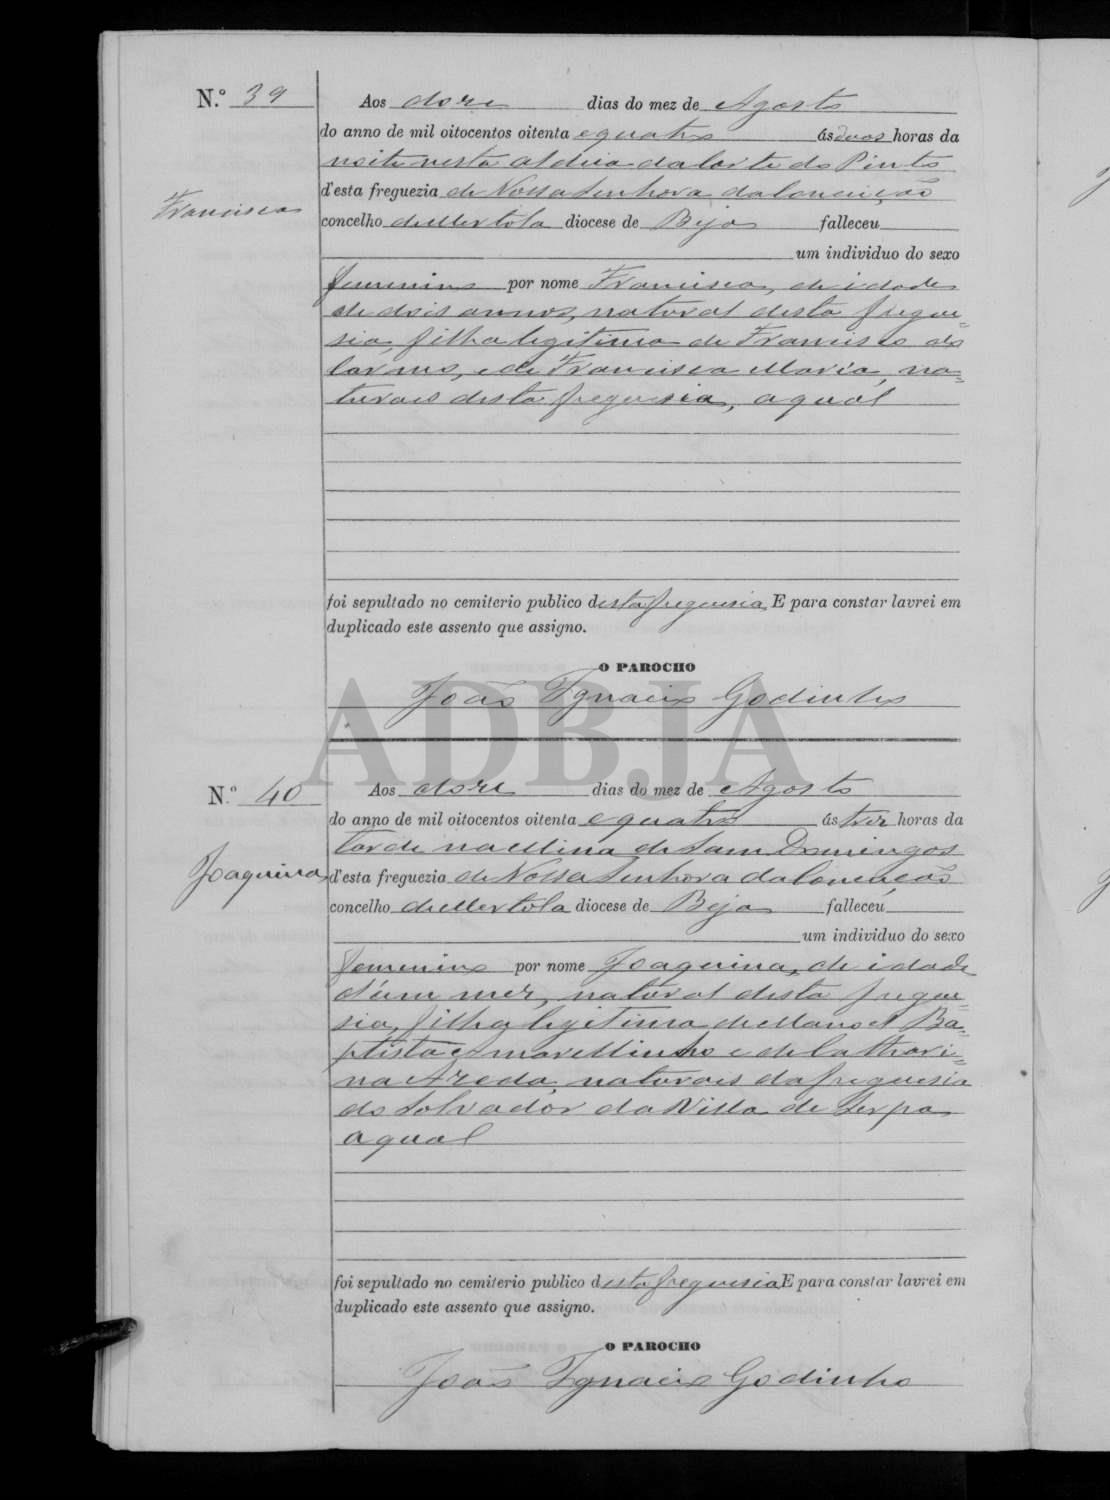 N.º 39
Aos doze dias do mez de Agosto
do anno de mil oitocentos oitenta e quatro ás duas horas da
noite nesta aldeia da Corte do Pinto
d'esta freguezia de Nossa Senhora da Conceição
Francisca
concelho de Mertola diocese de Beja falleceu
um individuo do sexo
femenino por nome Francisca, de idade
de dois annos, natural desta fregue=
sia, filha legitima de Francisco do
Carmo, e de Francisca Maria, na=
turaes desta freguesia, aqual
foi sepultado no cemiterio publico desta freguesia E para constar lavrei em
duplicado este assento que assigno.
O PAROCHO
João Ignacio Godinho
ADBJA
N.º 40
Aos doze dias do mez de Agosto
do anno de mil oitocentos oitenta e quatro ás trez horas da
tarde na Mina de Sam Domingos
Joaquina
d'esta freguezia de Nossa Senhora da Conceição
concelho de Mertola diocese de Beja falleceu
um individuo do sexo
femenino por nome Joaquina, de idade
d'um mez, natural desta fregue=
sia, filha legitima de Manoel Ba=
ptista e de Cathari=
na Azeda, naturaes da freguesia
do Salvador da Villa de Serpa
aqual
foi sepultado no cemiterio publico desta freguesia E para constar lavrei em
duplicado este assento que assigno.
O PAROCHO
João Ignacio Godinho